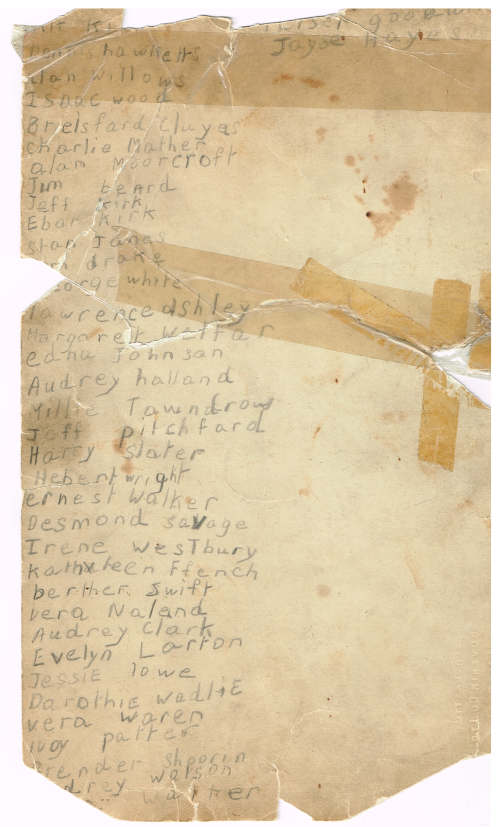 Jayse Hayes
Dennis hawketts
alan Willows
Isaac wood
Brelsfard Cluyas
Charlie Mather
alan Moorcroft
Jim beard
Jeff kirk
Ebar kirk
Stan Janes
drake
George white
lawrence ashley
Margaret
edna Johnson
Audrey halland
Millie Tawndrow
Jeff pitchfard
Harry Slater
Hebert wright
ernest Walker
Desmond savage
Irene WesTbury
kathxleen Ffench
berther Swift
vera Naland
Audrey Clark
Evelyn Larton
JessiE lowe
Darothie wadliE
vera waren
ivoy patter
render Shoorin
drey watson
walker